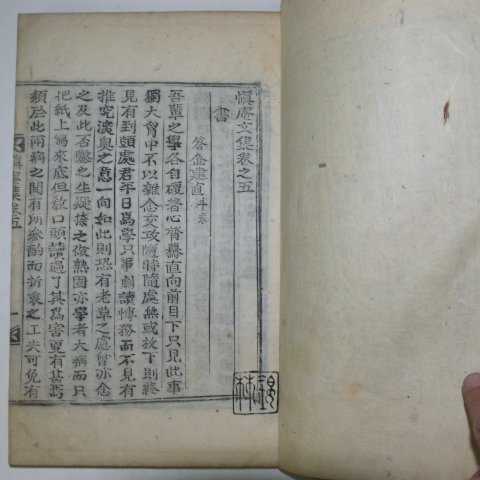 愼庵文集卷之五
書
答金建直
吾輩之學各自礎着心齊驀直向前目下只見此事
獨大胷中不以雜念交攻隨時隨處無或放下則終
見有到頭處君平日爲學只事剛讀博務而不見有
推究深奧之意一向如此則恐有老草之慮曾亦念
之及此否鑿之生疑揍之做熟固亦學者大病而只
把紙上寫來底但敎口頭讀過了其爲害更有甚焉
須於此兩病之間有所參酌而折衷之工夫可免有
愼庵集卷五
一